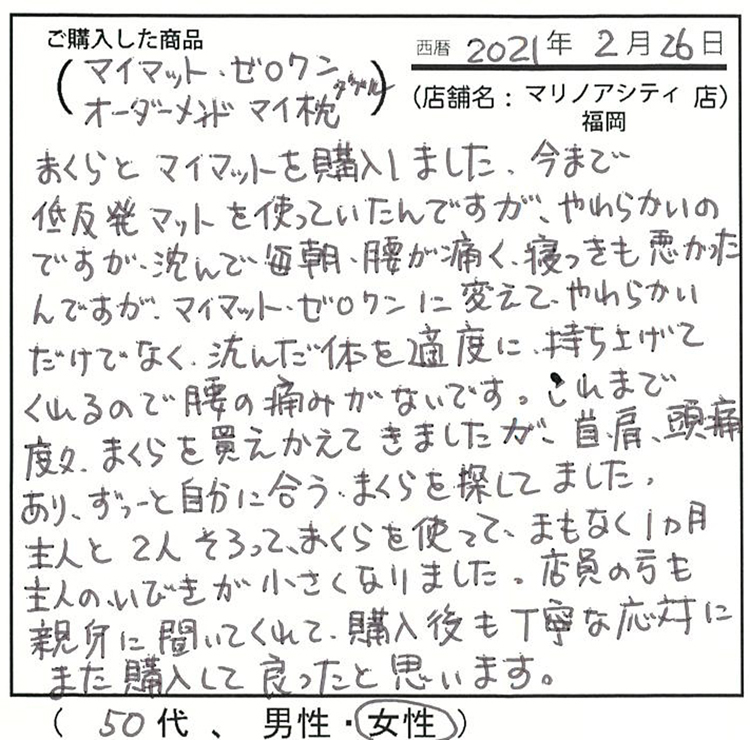 ご購入した商品
西暦 2021年 2月26日
(マイマット・ゼロワン ダブル
オーダーメンド マイ枕)
(店舗名：マリノアシティ 店)
福岡
まくらと マイマットを購入しました、今まで
低反発マットを使っていたんですが、やわらかいの
ですが、沈んで毎朝、腰が痛く、寝つきも悪かった
んですが、マイマット・ゼロワンに変えて、やわらかい
だけでなく、沈んだ体を適度に、持ち上げて
くれるので腰の痛みがないです。これまで
度々、まくらを買えかえてきましたが、首、肩、頭痛
あり、ずっーと自分に合う、まくらを探してました。
主人と2人そろって、まくらを使って、まもなく1ヵ月
主人の、いびきが小さくなりました。店員の方も
親身に聞いてくれて、購入後も丁寧な応対に
また購入して良ったと思います。
(50代、男性・女性)